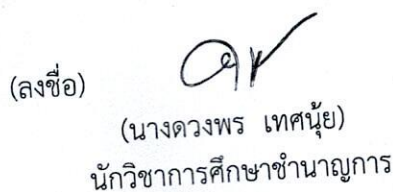 (ลงชื่อ)
(นางดวงพร เทศนุ้ย)
นักวิชาการศึกษาชำนาญการ